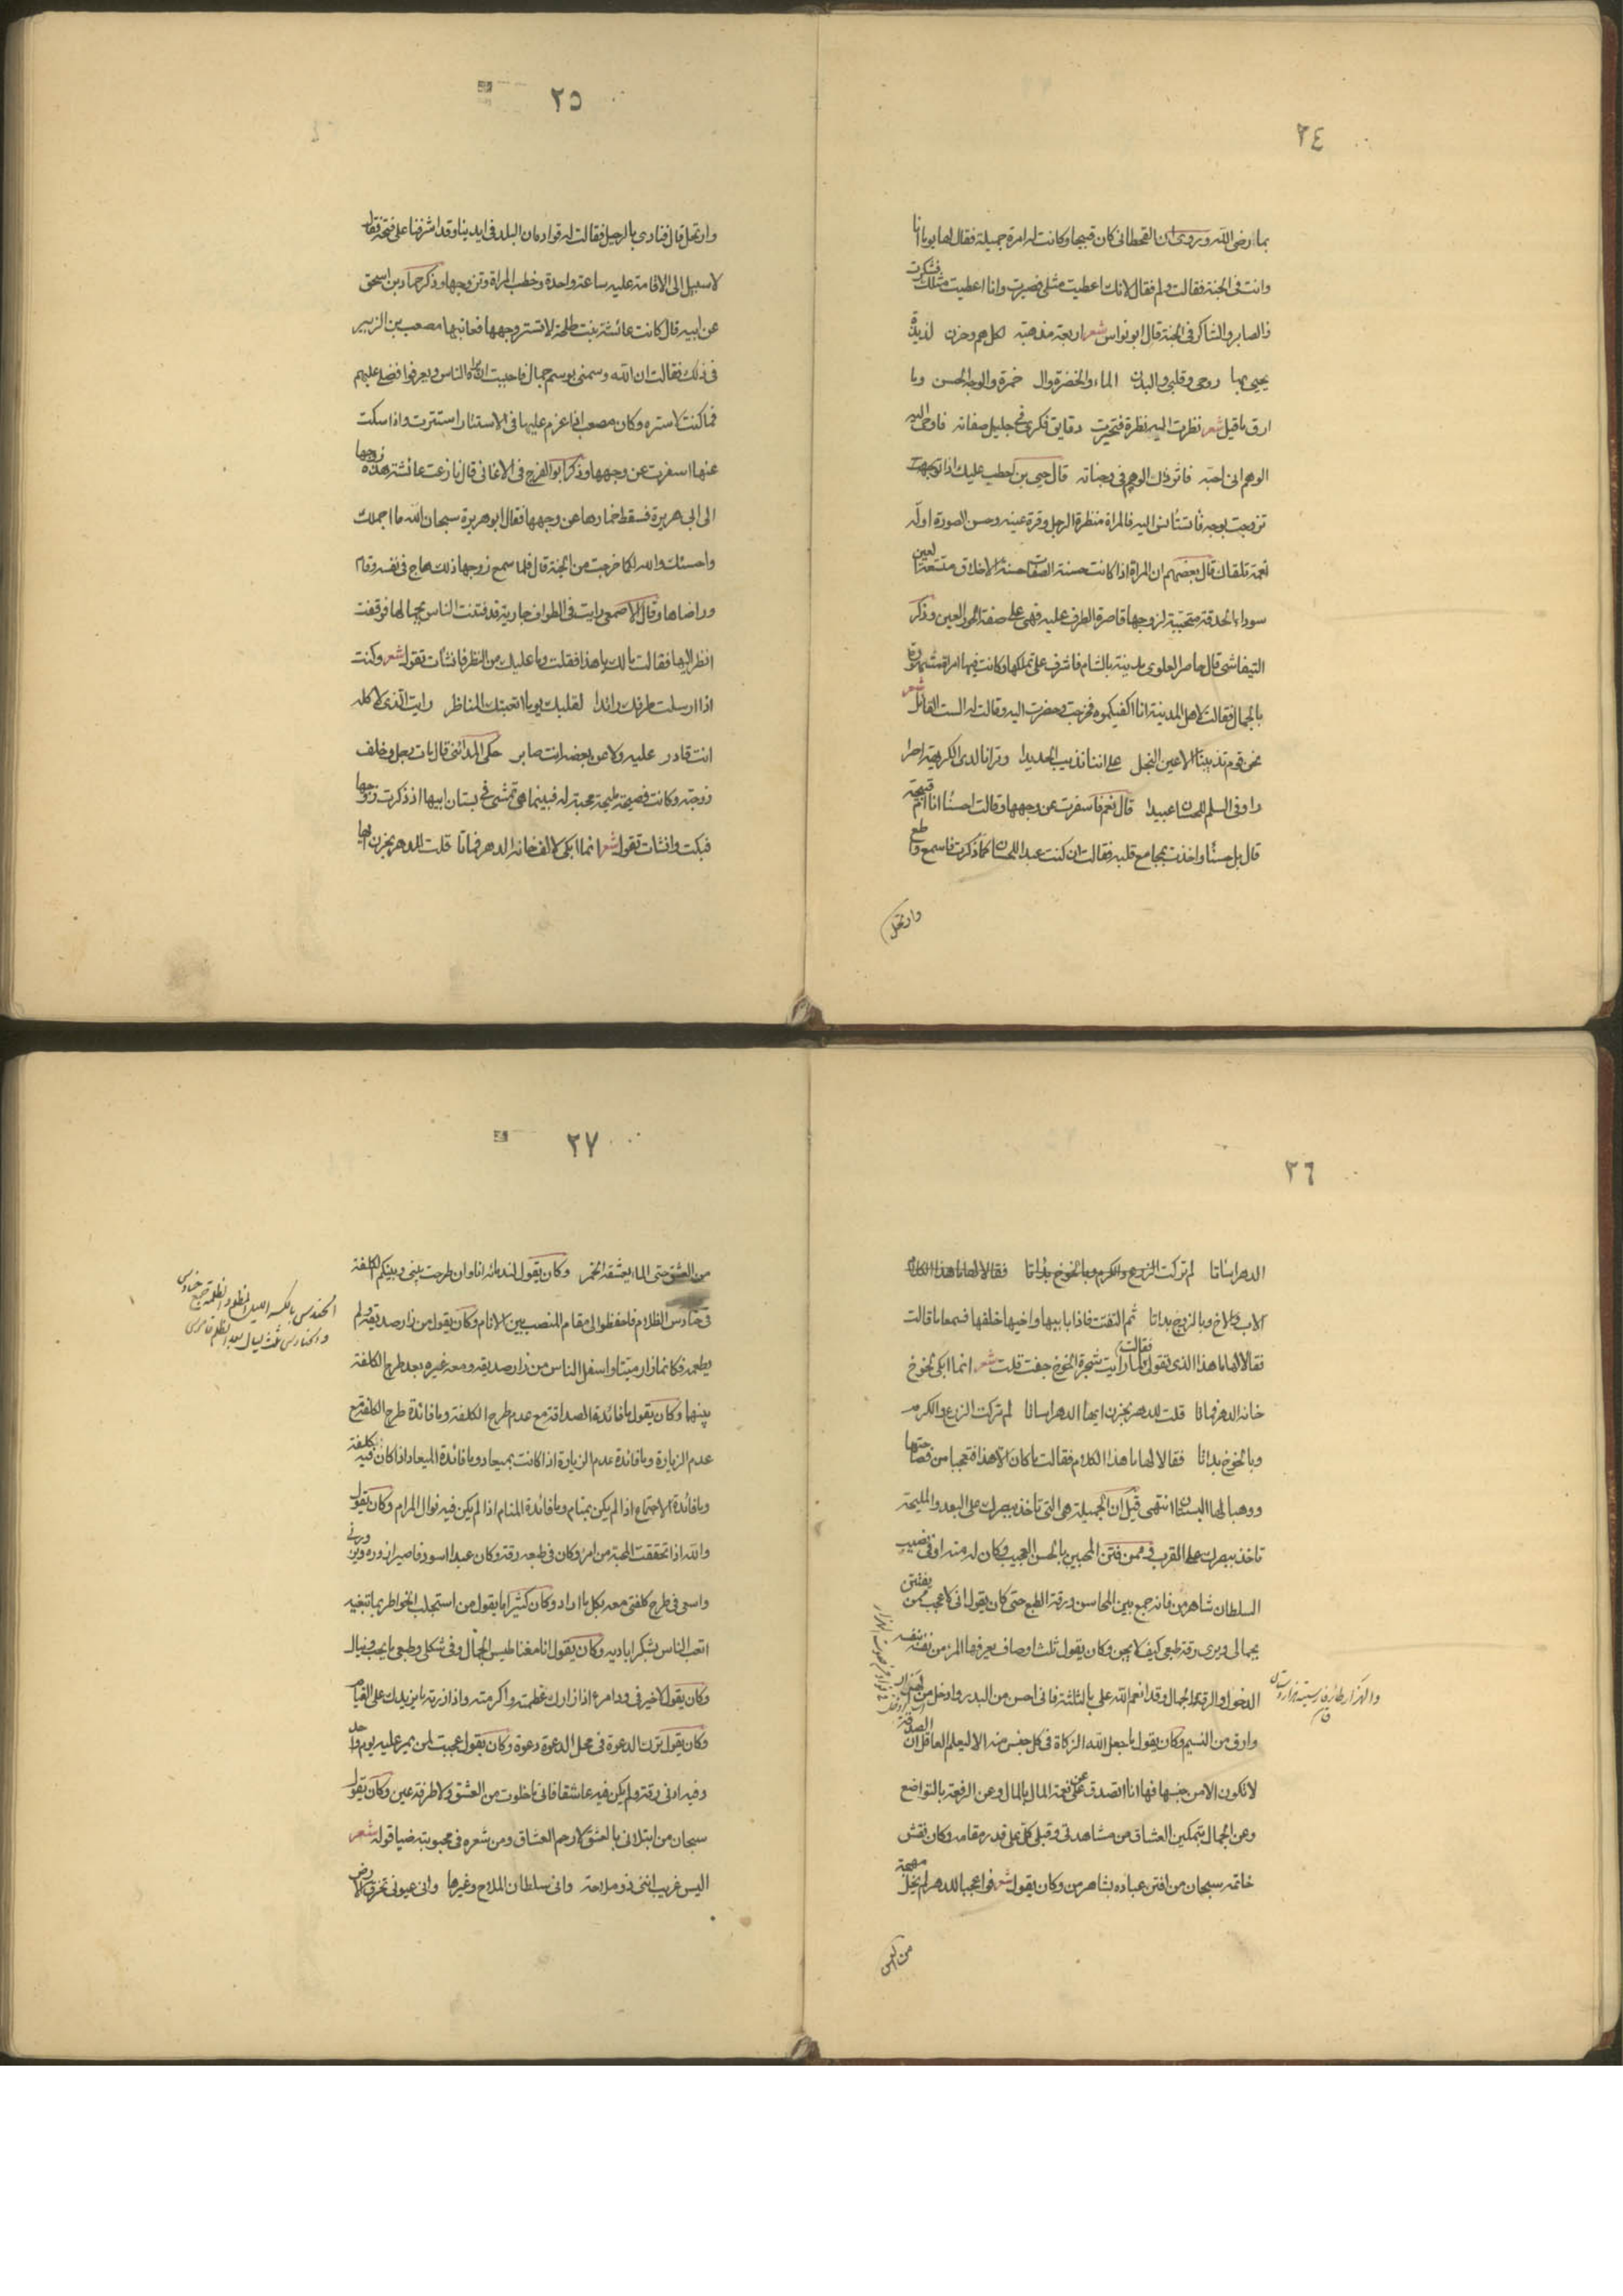 ٢٤
بما رضى الله وروى ان القحطانى كان قبيحا وكانت له امرة جميلة فقال لها يوما انا
وانت فى الجنة فقالت ولم فقال لانك اعطيت مثلى فصبرت وانا اعطيت مثلك فشكرت
فالصابر والشاكر فى الجنة قال ابو نواس شعر اربعة مذهبة لكل هم وحزن لذيذة
يحيى بها روحى وقلبى والبدن الماء والخضرة وال خمرة والوجه الحسن وما
ارق ما قيل شعر نظرت اليه نظرة فتحيرت دقايق فكرى فى جليل صفاته فاوحى اليه
الوهم انى احبه فاثر ذاك الوهم فى وجناته قال حيى بن اخطب عليك اذا توجهت
تزوجت بوجه تستأنس اليه فالمراة منظرة الرجل وقرة عينه وحسن الصورة اول
نعمة تلقاك قال بعضهم ان المراة اذا كانت حسنة الصفا حسنة الاخلاق متسعة العين
سوداء الحدقة متحببة لزوجها قاصرة الطرف عليه فهى على صفة الحور العين وذكر
التيفاشى قال حاصر العلوى مدينة بالشام فاشرف على تملكها وكانت فيها امراة مشهورة
بالجمال فقالت لاهل المدينة انا اكفيكموه فخرجت وحضرت اليه وقالت له الست القائل شعر
نحن قوم تذيبنا الاعين النجل على اننا نذيب الحديدا وترانا لدى الكريهة احرا
را وفى السلم للحسان عبيدا قال نعم فاسفرت عن وجهها وقالت احسنا انا ام قبيحة
قال بل حسنا واخذت بمجامع قلبه فقالت ان كنت عبدا للحسان كما ذكرت فاسمع واطع
وارتحل
٢٥
وارتحل قال فنادى بالرحيل فقالت له قواده ان البلد فى ايدينا وقد اشرفنا على فتحه فقال
لا سبيل الى الاقامة عليه ساعة واحدة وخطب المراة وتزوجها وذكر حماد بن اسحق
عن ابيه قال كانت عائشة بنت طلحة لا تستر وجهها فعاتبها مصعب بن الزبير
فى ذلك فقالت ان الله وسمنى بوسم جمال فاحببت ان يراه الناس ويعرفوا فضلى عليهم
فما كنت لاستره وكان مصعب اذا عزم عليها فى الاستتار استترت واذا سكت
عنها اسفرت عن وجهها وذكر ابو الفرج فى الاغانى قال نازعت عائشة هذه زوجها
الى ابى هريرة فسقط خمارها عن وجهها فقال ابو هريرة سبحان الله ما اجملك
واحسنك والله لكانما خرجت من الجنة قال فلما سمع زوجها ذلك هاج فى نفسه وقام
وراضاها وقال الاصمعى رايت فى الطواف جارية قد فتنت الناس بجمالها فوقفت
انظر اليها فقالت مالك يا هذا فقلت وما عليك من النظر فانشات تقول شعر وكنت
اذا ارسلت طرفك رائدا لقلبك يوما اتعبتك المناظر رايت الذى لا كله
انت قادر عليه ولا عن بعضه انت صابر حكى المدائنى قال مات رجل وخلف
زوجته وكانت فصيحة مليحة محبة له فبينما هى تمشى فى بستان ابيها اذ ذكرت زوجها
فبكت وانشات تقول شعر انما ابكى لالف خانه الدهر فماتا قلت للدهر بحزن ايها
٢٦
الدهر اساتا لم تركت الزرع والكرم وبالخوخ بداتا فقالا لها ما هذا الكلام
لاب ولاخ وبالزوج بداتا ثم التفتت فاذا بابيها واخيها خلفها فسمعا ما قالت
فقالا لها ما هذا الذى تقولى فقالت لما رايت شجرة الخوخ جفت قلت شعر انما ابكى لخوخ
خانه الدهر فماتا قلت للدهر بحزن ايها الدهر اساتا لم تركت الزرع والكرم
وبالخوخ بداتا فقالا لها ما هذا الكلام فقالت ما كان الا هذا فتعجبا من فصاحتها
ووهبا لها البستان انتهى قيل ان الجميلة هى التى تاخذ ببصرك على البعد والمليحة
تاخذ ببصرك على القرب فممن فتن المحبين بالحسن العجيب وكان له منه اوفى نصيب
السلطان شاهرمن فانه جمع بين المحاسن ورقة الطبع حتى كان يقول انى لاعجب ممن يفتتن
بجمالى ويرى رقة طبعى كيف لا يجن وكان يقول ثلث اوصاف يعرفها المرء من نفسه
الدخول والرقة والجمال وقد انعم الله على بالثلثة فانى احسن من البدر وادخل من الهزار
وارق من النسيم وكان يقول ما جعل الله الزكاة فى كل جنس منه الا ليعلم العاقل ان الصدقة
لا تكون الا من جنسها فها انا اتصدق عن نعمة المال بالمال وعن الرفعة بالتواضع
وعن الجمال بتمكين العشاق من مشاهدتى وقبلى كل على قدر مقامه وكان نقش
خاتمه سبحان من افتن عباده بشاهرمن وكان يقول شعر فواعجبا للدهر لم يخل مهجة
من العشق
٢٧
من العشق حتى الماء يعشقه الخمر وكان يقول لندمائه انا وان طرحت بينى وبينكم الكلفة
فى حنادس الظلام فاحفظوا لى مقام المنصب بين الانام وكان يقول من زار صديقه ولم
يطعمه فكانما زار ميتا واسفل الناس من زار صديقه ومعه غيره بعد طرح الكلفة
بينهما وكان يقول ما فائدة الصداقة مع عدم طرح الكلفة وما فائدة طرح الكلفة مع
عدم الزيارة وما فائدة عدم الزيارة اذا كانت بميعاد وما فائدة الميعاد اذا كان فيه تكلفة
وما فائدة الاجتماع اذا لم يكن بمنام وما فائدة المنام اذا لم يكن فيه نوال المرام وكان يقول
والله اذا تحققت المحبة من امرء وكان فى طبعه رقة وكان عبدا اسود فاصير ازوره ويزورنى
واسعى فى طرح كلفتى معه بكل ما اراد وكان كثيرا ما يقول من استجلب الخواطر بما تبغيه
اتعب الناس بشكر اياديه وكان يقول انا مغناطيس الجمال وفى شكلى وطبعى ما يحب وينال
وكان يقول لا خير فى ودامرء اذا زارك عظمته واكرمته واذا زرته ما يزيدك على القيام
وكان يقول ترك الدعوة فى محل الدعوة دعوة وكان يقول عجبت لمن يمر عليه يوم واحد
وفيه ادنى رقة ولم يكن فيه عاشقا فانى ما خلوت من العشق ولا طرفة عين وكان يقول
سبحان من ابتلانى بالعشق لارحم العشاق ومن شعره فى محبوبته ضيا قوله شعر
اليس غريب اننى ذو ملاحة وانى سلطان الملاح وغيرها وانى عيونى تخرق الارض
الحندس بالكسر الليل المظلم والظلمة جمع حنادس